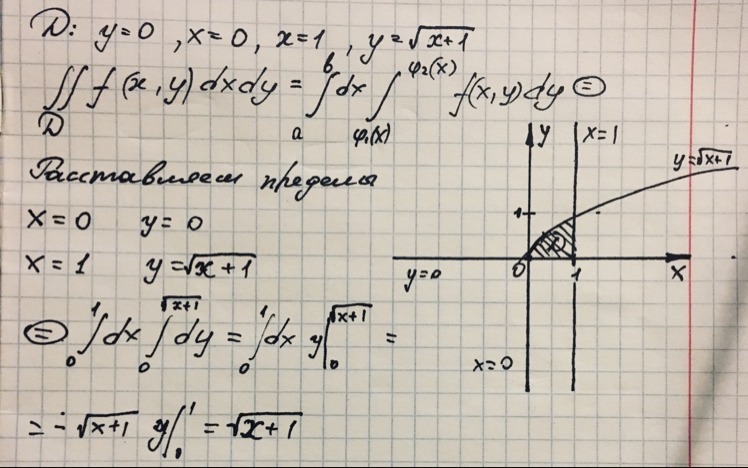 D: y=0 , x=0, x=1 , y=√(x+1)
∬_D f(x,y) dxdy = ∫_a^b dx ∫_{φ₁(x)}^{φ₂(x)} f(x,y) dy ⊜
Расставляем пределы
x=0 y=0
x=1 y=√(x+1)
⊜ ∫_0^1 dx ∫_0^{√(x+1)} dy = ∫_0^1 dx y|_0^{√(x+1)} =
= - √(x+1) y|_0^1 = √(x+1)
y
x=1
y=√(x+1)
1
D
y=0
0
1
x
x=0